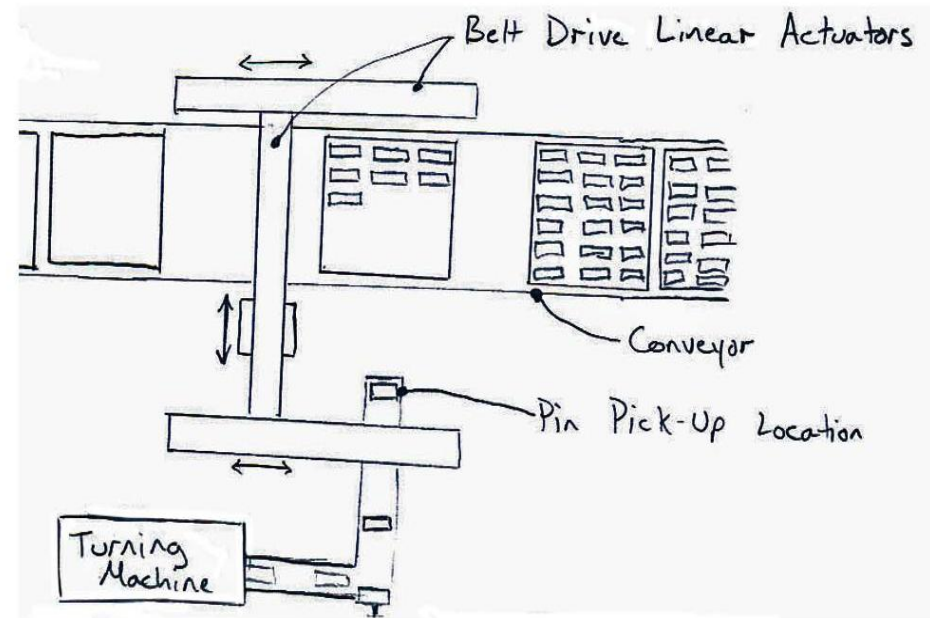 Belt Drive Linear Actuators
Conveyor
Pin Pick-Up Location
Turning
Machine